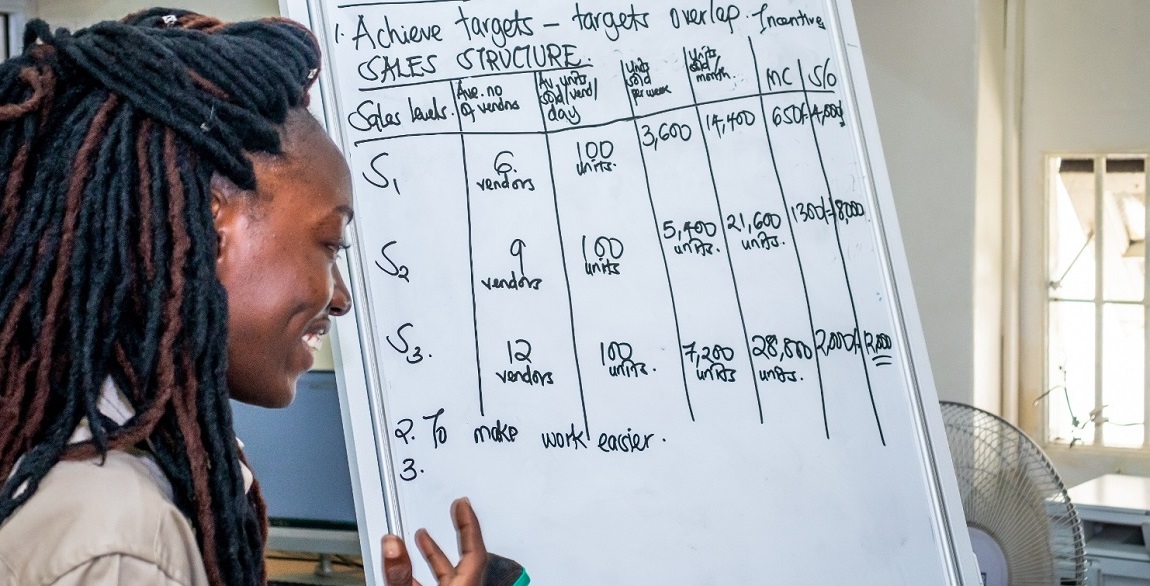 1. Achieve targets – targets overlap. Incentive
SALES STRUCTURE.
Sales levels. Ave. no of vendors Av. units sold/vend/day Units sold per week Units sold/month. MC S/O
S1 6 vendors 100 units. 3,600 14,400 650/= 4,000/
S2 9 vendors 100 units 5,400 units. 21,600 units. 1300/= 8,000
S3. 12 vendors 100 units. 7,200 units 28,800 units. 2,000/= 12,000
2. To make work easier.
3.